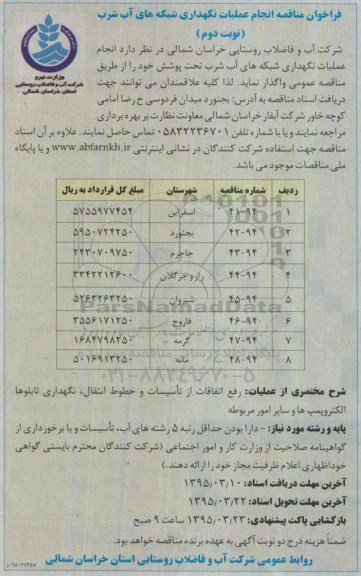 فراخوان مناقصه انجام عملیات نگهداری شبکه های آب شرب
(نوبت دوم)
وزارت نیرو
شرکت آب و فاضلاب روستایی
استان خراسان شمالی
شرکت آب و فاضلاب روستایی خراسان شمالی در نظر دارد انجام
عملیات نگهداری شبکه های آب شرب تحت پوشش خود را از طریق
مناقصه عمومی واگذار نماید. لذا کلیه علاقمندان می توانند جهت
دریافت اسناد مناقصه به آدرس: بجنورد میدان فردوسی خ رضا امامی
کوچه خاور شرکت آبفار خراسان شمالی معاونت نظارت بر بهره برداری
مراجعه نمایند و یا با شماره تلفن ۰۵۸۳۲۲۳۶۷۰۱ تماس حاصل نمایند. علاوه بر آن اسناد
مناقصه جهت استفاده شرکت کنندگان در نشانی اینترنتی www.abfarnkh.ir و یا پایگاه
ملی مناقصات موجود می باشد.
ردیف شماره مناقصه شهرستان مبلغ کل قرارداد به ریال
۱ ۴۱-۹۴ اسفراین ۵۷۵۵۹۷۷۴۵۴
۲ ۴۲-۹۴ بجنورد ۵۹۵۰۷۲۴۲۵۰
۳ ۴۳-۹۴ جاجرم ۲۴۳۰۷۰۹۷۵۰
۴ ۴۴-۹۴ راز و جرگلان ۳۳۴۲۲۱۲۶۰۰
۵ ۴۵-۹۴ شیروان ۵۲۶۳۲۶۳۲۵۰
۶ ۴۶-۹۴ فاروج ۳۵۵۶۱۷۱۲۵۰
۷ ۴۷-۹۴ گرمه ۱۶۸۴۷۹۸۲۵۰
۸ ۴۸-۹۴ مانه ۵۰۱۶۹۱۳۲۵۰
ParsNamadData
۰۲۱-۸۸۳۴۹۶۷۰-۵
شرح مختصری از عملیات: رفع اتفاقات از تأسیسات و خطوط انتقال، نگهداری تابلوها
الکتروپمپ ها و سایر امور مربوطه
پایه و رشته مورد نیاز: - دارا بودن حداقل رتبه ۵ رشته های آب، تأسیسات و یا برخورداری از
گواهینامه صلاحیت از وزارت کار و امور اجتماعی (شرکت کنندگان محترم بایستی گواهی
خوداظهاری اعلام ظرفیت مجاز خود را ارائه دهند.)
آخرین مهلت دریافت اسناد: ۱۳۹۵/۰۳/۱۰
آخرین مهلت تحویل اسناد: ۱۳۹۵/۰۳/۲۲
بازگشایی پاکت پیشنهادی: ۱۳۹۵/۰۳/۲۳ ساعت ۹ صبح
ضمناً هزینه درج دو نوبت آگهی به عهده برنده مناقصه خواهد بود.
روابط عمومی شرکت آب و فاضلاب روستایی استان خراسان شمالی